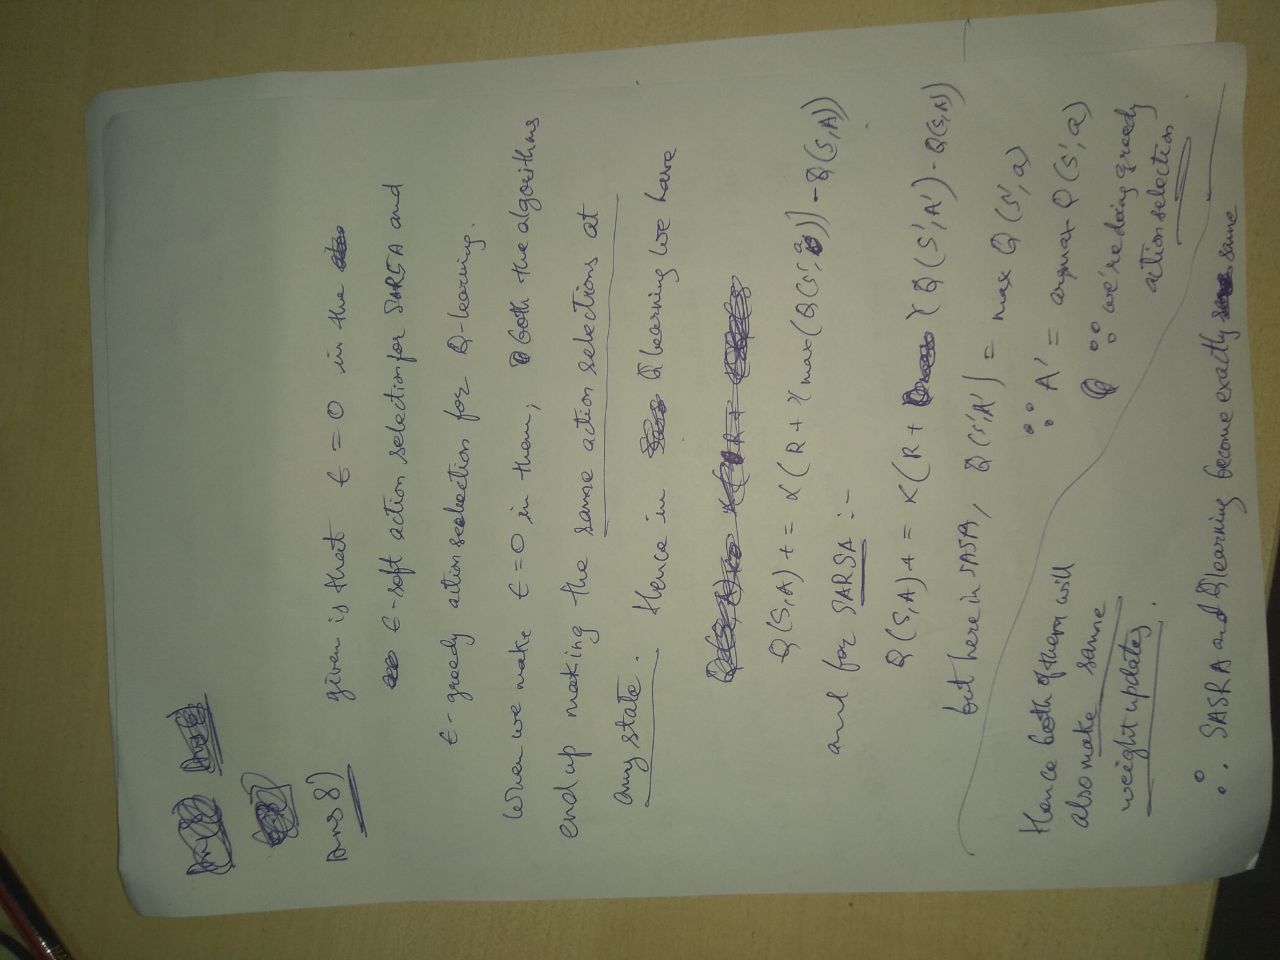 Ans 8)
given is that ϵ = 0 in the
ϵ-soft action selection for SARSA and
ϵ-greedy action selection for Q-learning.
When we make ϵ = 0 in them, both the algorithms
end up making the same action selections at
any state. Hence in Q learning we have
Q(S,A) += α(R + γ max(Q(S',a)) - Q(S,A))
and for SARSA :-
Q(S,A) += α(R + γ Q(S',A') - Q(S,A))
but here in SASA, Q(S',A') = max Q(S',a)
∵ A' = argmax Q(S',a)
∵ we're doing greedy
action selection
Hence both of them will
also make same
weight updates.
∴ SASRA and Q learning become exactly same